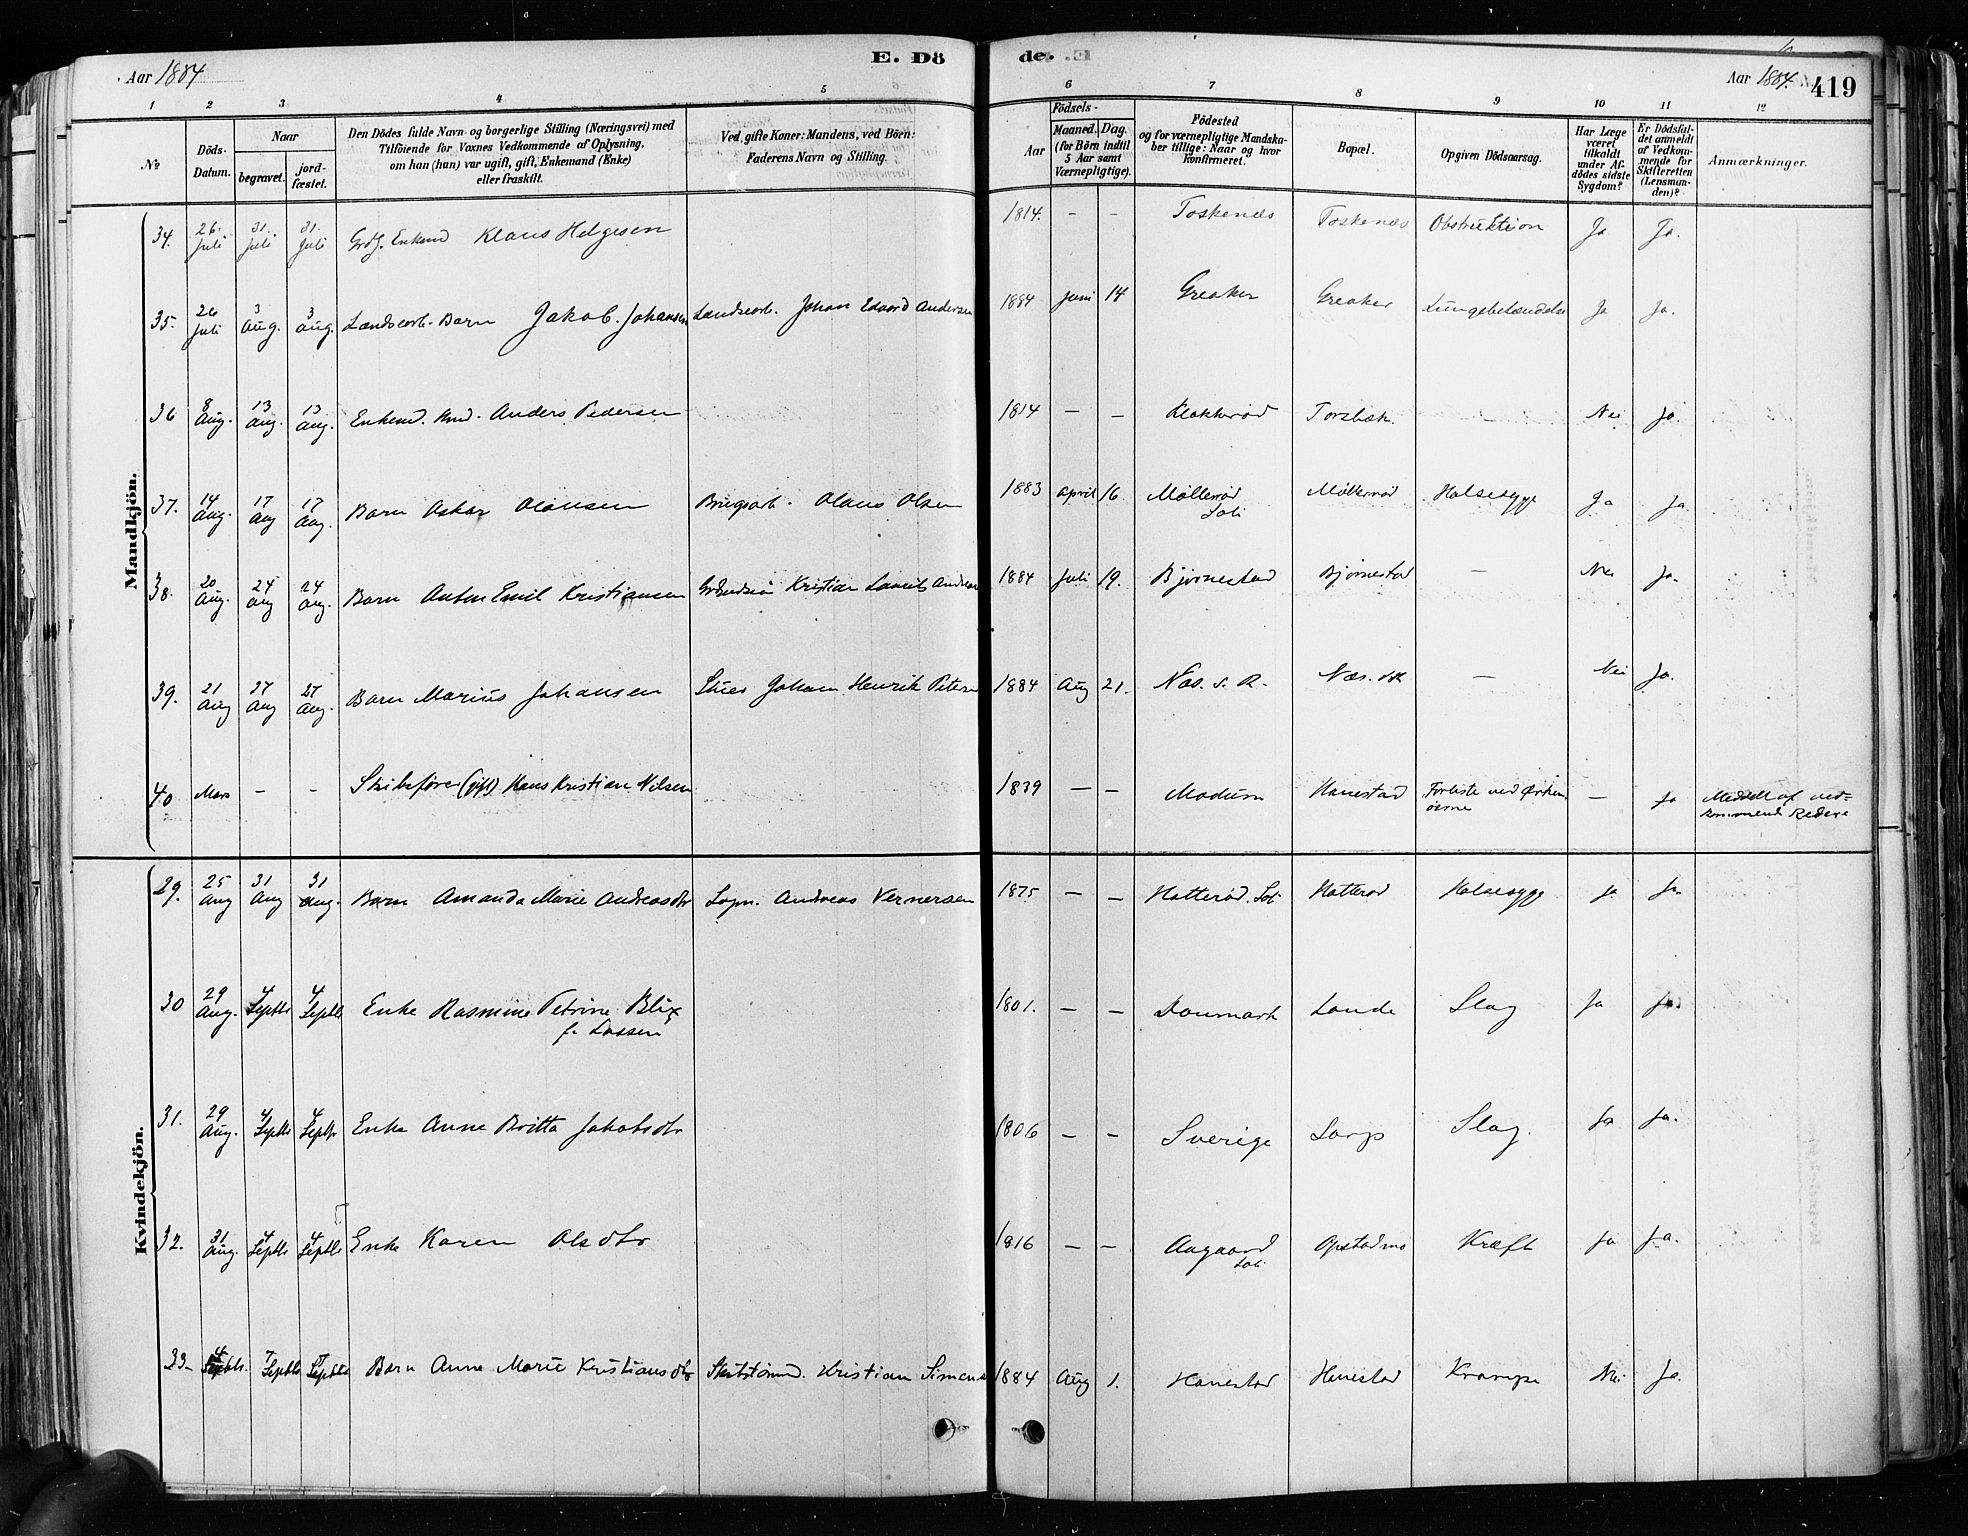 Aar 1884
E. Dö
de.
Aar 1884.
419
1 2 3 4 5 6 7 8 9 10 11 12
No
Döds-Datum.
Naar
begravet.
jord-fæstet.
Den Dödes fulde Navn og borgerlige Stilling (Næringsvei) med
Tilföiende for Voxnes Vedkommende af Oplysning,
om han (hun) var ugift, gift, Enkemand (Enke)
eller fraskilt.
Ved gifte Koner: Mandens, ved Börn:
Faderens Navn og Stilling.
Födsels-
Aar
Maaned. Dag.
(for Börn indtil
5 Aar samt
Værnepligtige).
Födested
og for værnepligtige Mandska-
ber tillige: Naar og hvor
konfirmeret.
Bopæl.
Opgiven Dödsaarsag.
Har Læge
været
tilkaldt
under Af-
dödes sidste
Sygdom?
Er Dödsfal-
det anmeldt
af Vedkom-
mende for
Skifteretten
(Lensman-
den)?
Anmærkninger.
Mandkjön.
34. 26. Juli 31. Juli 31. Juli Enkemd Klaus Helgesen 1814. – – Toskenæs Toskenæs Obstruktion Ja Ja.
35. 26 Juli 3 Aug. 3 Aug. Landsearb. Barn Jakob Johansen Landsearb. Johan Edvard Andersen 1884 Juni 14 Greaker Greaker Lungebetændelse Ja Ja.
36 8 Aug. 13 Aug. 13 Aug. Enkemd. Anders Pedersen 1814 – – Klokkerød Torsbæk. – Nei Ja.
37. 14 Aug. 17 Aug 17 Aug. Barn Oskar Olausen Brugsarb. Olaus Olsen 1883 April 16. Møllerød Soli Møllerød Halsesyge Ja Ja.
38. 20 Aug. 24 Aug 24 Aug. Barn Anton Emil Kristiansen Kristian Laurits Andreas 1884 Juli 19. Bjørnestad Bjørnestad – Nei Ja.
39. 21 Aug 27 Aug 27 Aug. Barn Marius Johansen Johan Henrik Peters 1884 Aug 21. Næs. s. R. Næs. – Nei Ja.
40 Mars – – Skibsfører (gift) Hans Kristian Nilsen 1839 – – Modum Hanestad Forliste ved Ørken-
øerne – Ja Meddelt af ved-
kommende Rederi
Kvindekjön.
29. 25 Aug 31 Aug 31 Aug. Barn Amanda Marie Andreasdtr Andreas Vernersen 1875 – – Hatterød. Sol. Hatterød Halsesyge Ja Ja.
30 29 Aug. 4 Septbr 4 Septbr Enke Rasmine Petrine Blix
f. Lassen 1801. – – Danmark Lande Slag Ja Ja.
31. 29 Aug. 4 Septbr 4 Septbr Enke Anne Britta Jakobsdtr 1806 – – Sverige Sarps Slag. Ja Ja.
32. 31 Aug. 4 Septbr 4 Septbr Enke Karen Olsdtr 1816 – – Aagaard
Soli Opstadmo Kræft Ja Ja.
33. 4 Septbr. 7 Septbr 7 Septbr Barn Anne Marie Kristiansdtr Kristian Simens 1884 Aug 1. Hanestad Hanestad Krampe Nei Ja.